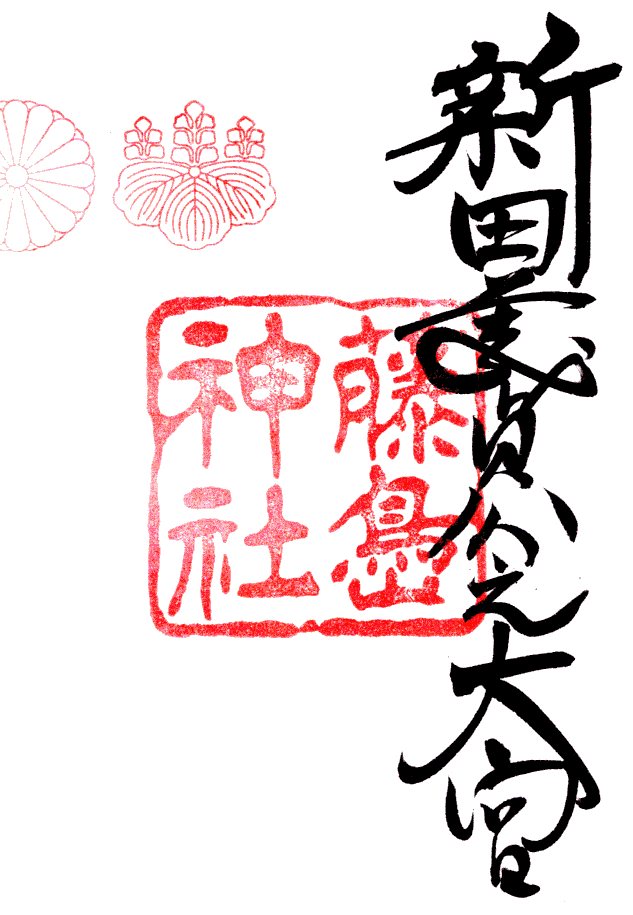 新田義貞公大宮
藤島
神社